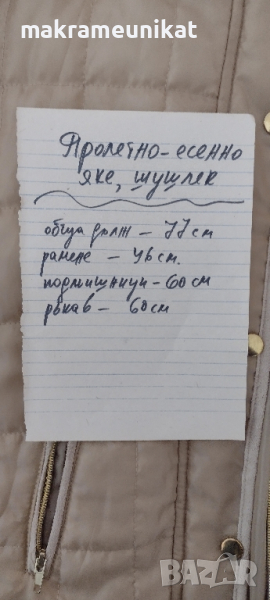 makrameunikat
Пролетно-есенно
яке, шушлек
обща дълж - 77см
рамене - 46 см.
подмишници - 60 см
ръкав - 60 см
BAZAR